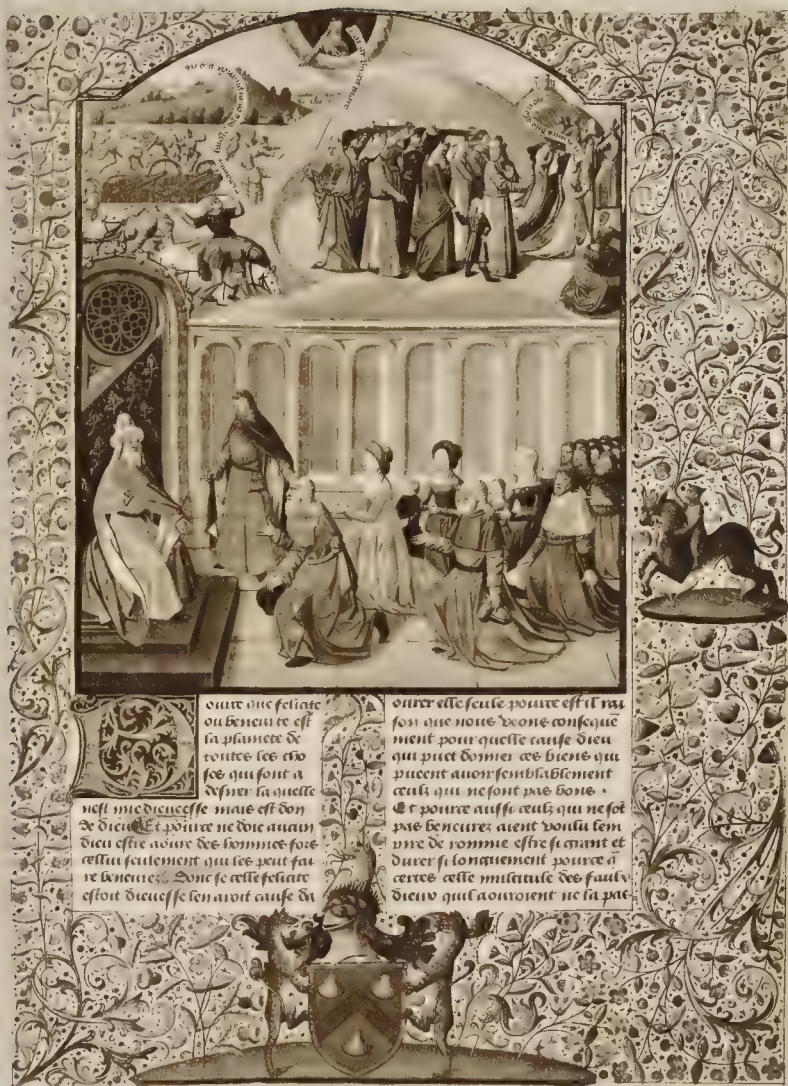 ourre que felicite
ou beneurte est
la planete de
toutes les cho
ses qui font a
desirer la quelle
nest mie dieuesse mais est don
de dieu Et pource ne doie aucun
dieu estre aoure des hommes fors
cellui seulement qui les peut fai
re beneure Donc se celle felicite
estoit dieuesse len aroit cause da
ourer elle seule pource est il rai
son que nous veons consequē
ment pour quelle cause dieu
qui puet donner ces biens qui
pueent auoir semblablement
ceulx qui ne sont pas bons .
Et pource aussi ceulx qui ne sōt
pas beneurez aient voulu lem
pire de romme estre si grant et
durer si longuement pource q̄
certes celle multitude des faulx
dieux quil aouroient ne la pas